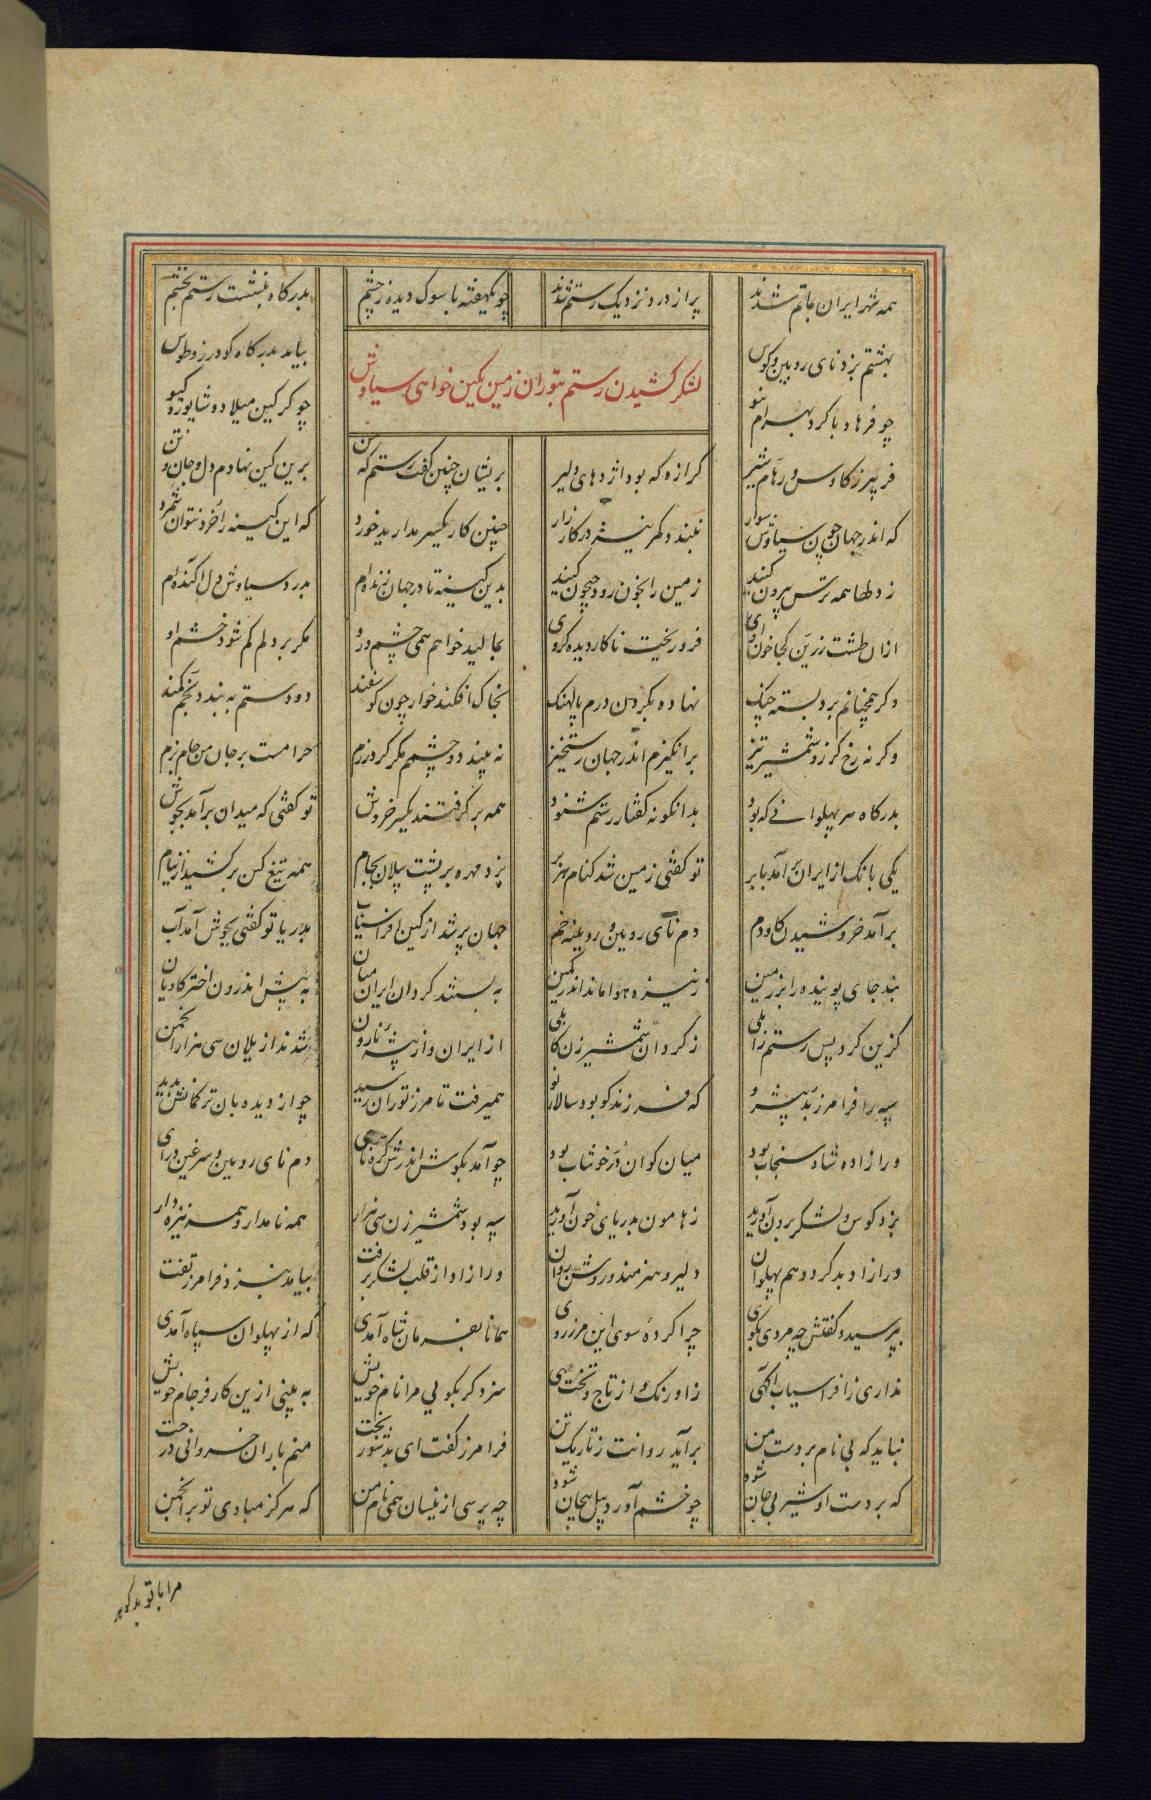 همه شهر ایران بماتم شدند پر از درد نزدیک رستم شدند چو یکهفته با سوک و دیده ز خشم بدرگاه بنشست رستم بخشم
بهشتم بزد نای رویین و کوس بیامد بدرگاه گودرز و طوس
لشکر کشیدن رستم بتوران زمین بکین خواهی سیاوش
چو فرهاد با گرد بهرام نیو چو گرگین میلاد و شاپور و گیو
فریبرز کاوس و رهام شیر گرازه که بود اژدهای دلیر بریشان چنین گفت رستم که من برین کین نهادم دل و جان و تن
که اندر جهان چون سیاوش سوار نبندد کمر نیز در کارزار چنین کار یکسر مدارید خورد که این کینه را خرد نتوان شمرد
ز دلها همه ترس بیرون کنید زمین را بخون رود جیحون کنید بدین کینه تا در جهان زنده‌ام بدرد سیاوش دل آکنده‌ام
ازان طشت زرین کجا خون اوی فرو ریخت ناکار دیده گروی بمالید خواهم همی چشم و رو مگر بر دلم کم شود خشم او
وگر همچنانم برد بسته چنگ نهاده بگردن درم پالهنگ بخاک افکند خوار چون گوسفند دو دستم به بند و بخم کمند
وگرنه رخ گرز و شمشیر تیز برانگیزم اندر جهان رستخیز نه بیند دو چشمم مگر گرد رزم حرامست بر جان من جام بزم
بدرگاه هر پهلوانی که بود بدانگونه گفتار رستم شنود همه برگرفتند یکسر خروش تو گفتی که میدان برآمد بجوش
یکی بانگ از ایران برآمد بابر تو گفتی زمین شد کنام هزبر بزد مهره بر پشت پیلان بجام همه تیغ کین برکشید از نیام
برآمد خروشیدن گاودم دم نای رویین و رویینه خم جهان پر شد از کین افراسیاب بدریا تو گفتی بجوش آمد آب
نبد جای پوینده را بر زمین ز نیزه هوا ماند اندر کمین به بستند گردان ایران میان به پیش اندرون اختر کاویان
گزین کرد پس رستم زابلی ز گردان شمشیر زن کابلی از ایران و از بیشه نارون شدند از یلان سی هزار انجمن
سپه را فرامرز بد پیشرو که فرزند گو بود سالار نو همیرفت تا مرز توران رسید چو از دیده‌بان ترکمانش بدید
ورازاد شاه سنجاب بود میان گوان در خوشاب بود چو آمد بگوش اندرش کره‌نای دم نای رویین و سرغین درای
بزد کوس و لشکر برون آورید ز هامون بدریای خون آورید سپه بود شمشیرزن سی هزار همه نامدار و همه نیزه‌دار
ورازاد بد گرد و هم پهلوان دلیر و هنرمند و روشن روان ورازاد از قلب لشکر برفت بیامد بنزد فرامرز تفت
بپرسید و گفتش چه مردی بگوی چرا کرده سوی این مرز روی همانا بفرمان شاه آمدی گه از پهلوان سپاه آمدی
نداری ز افراسیاب آگهی ز اورنگ و از تاج و تخت مهی سزد گر بگویی مرا نام خویش به بینی ازین کار فرجام خویش
نباید که بی نام بر دست من برآید روانت ز تاریک تن فرامرز گفت ای بد شوربخت منم بار ان خسروانی درخت
که بر دست او شیر بی‌جان شود چو خشم آورد پیل بیجان شود چه پرسی ازینسان همی نام من که هرگز مبادی تو بر انجمن
مرا با تو بدگوهر